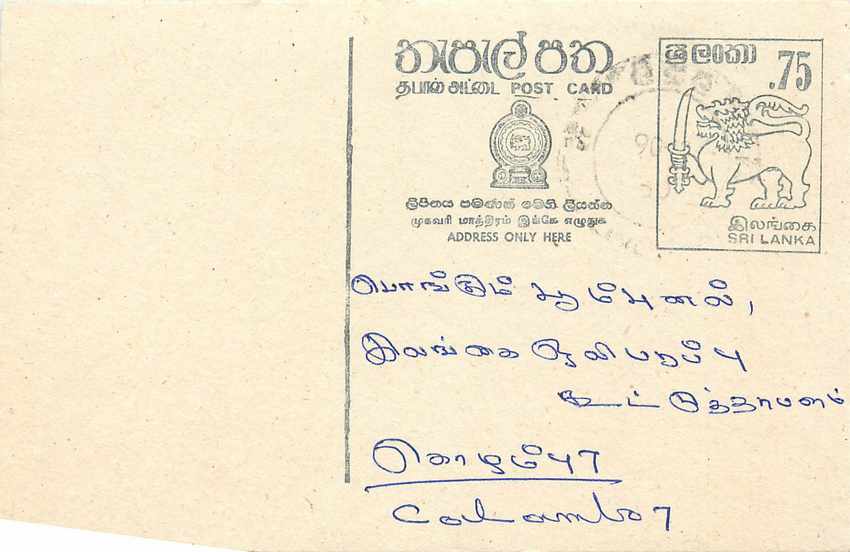 තැපැල් පත
தபால் அட்டை POST CARD
ශ්‍රී ලංකා
.75
ලිපිනය පමණක් මෙහි ලියන්න
முகவரி மாத்திரம் இங்கே எழுதுக
ADDRESS ONLY HERE
இலங்கை
SRI LANKA
பொங்கும் பூம்புனல்,
இலங்கை ஒலிபரப்பு
கூட்டுத்தாபனம்
கொழும்பு 7
Colombo 7